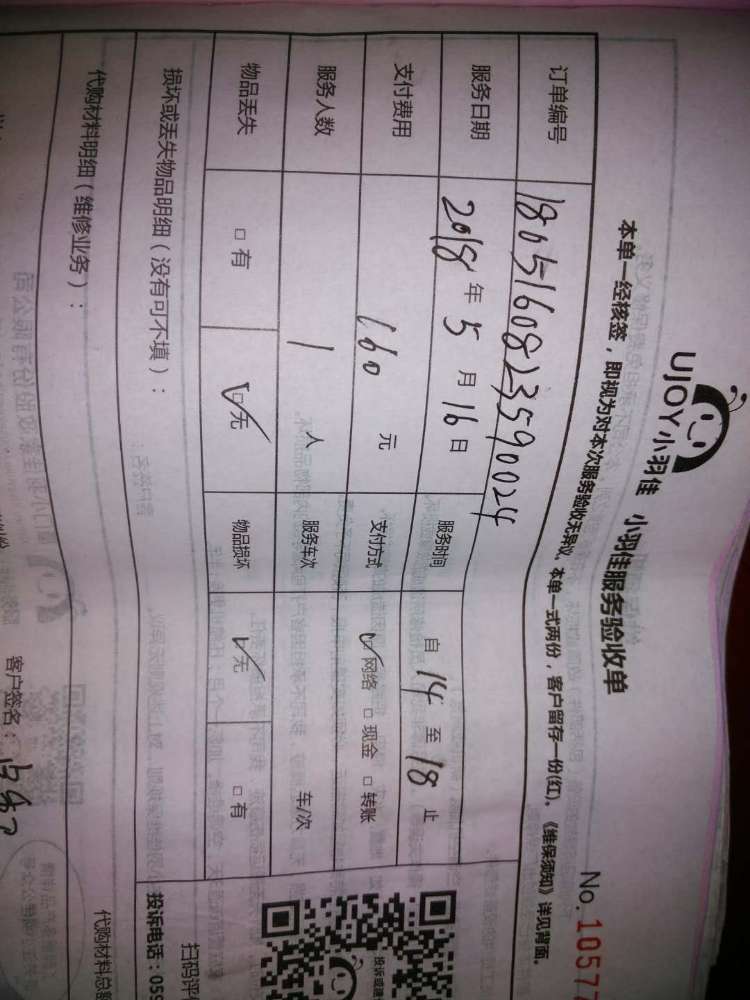 UJOY小羽佳 小羽佳服务验收单
No.10577
本单一经核签，即视为对本次服务验收无异议。本单一式两份，客户留存一份(红)。《维保须知》详见背面。
订单编号 1805160823590024
服务日期 2018年5月16日 服务时间 自14至18止
支付费用 160元 支付方式 ☑网络 □现金 □转账
服务人数 1人 服务车次 车/次
物品丢失 □有 ☑无 物品损坏 ☑无 □有
损坏或丢失物品明细（没有可不填）：
代购材料明细（维修业务）：
代购材料总
扫码评
投诉电话：059
客户签名：